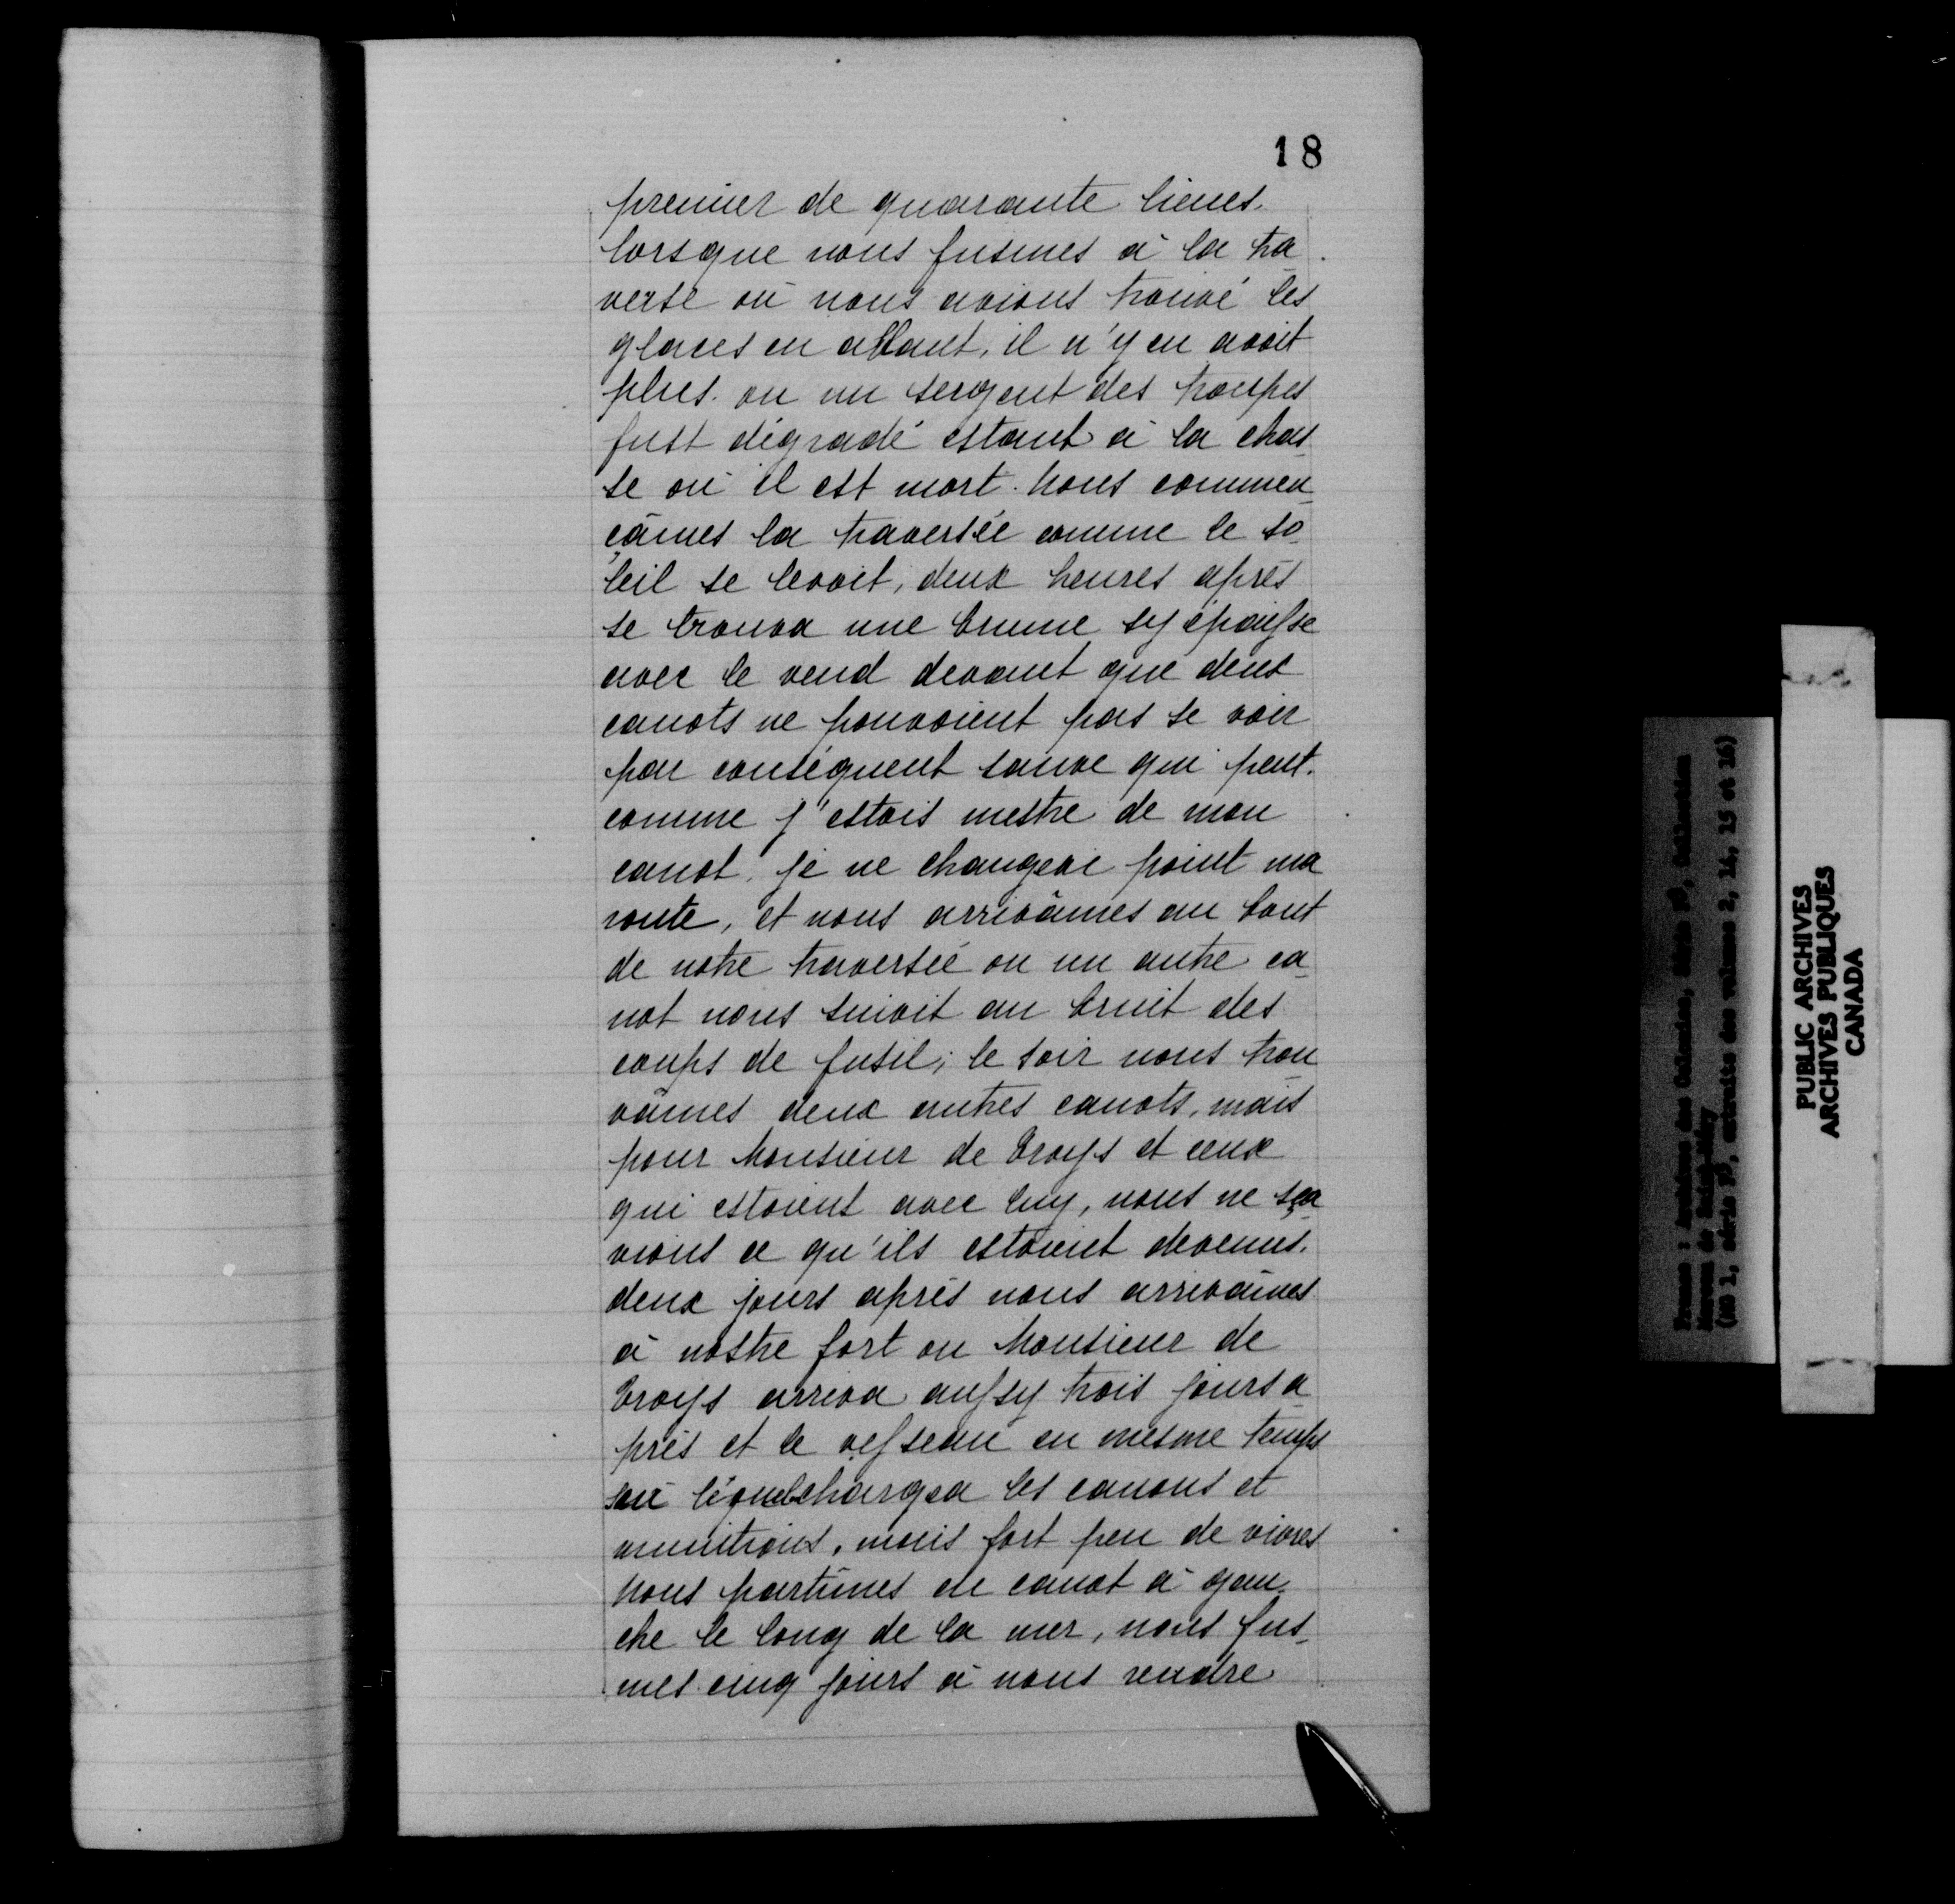 18
premier de quarante lieues.
lorsque nous fusmes à la tra
verse où nous avions trouvé les
glaces en allant, il n'y en avoit
plus. ou un sergent des troupes
fust dégradé estant à la chas_
se où il est mort. nous commen_
çâmes la traversée comme le so_
leil se levoit, deux heures après
se trouva une brume sy épaisse
avec le vend devant que deux
canots ne pouvoient pas se voir
par conséquent sauve qui peut.
comme j'estois mestre de mon
canot, je ne changeai point ma
route, et nous arrivâmes au bout
de notre traversée ou un autre ca_
not nous suivit au bruit des
coups de fusil; le soir nous trou
vâmes deux autres canots, mais
pour Monsieur de troyes et ceux
qui estoient avec luy, nous ne sça
vions ce qu'ils estoient devenus.
deux jours après nous arrivâmes
à nostre fort ou Monsieur de
troyes arriva aussy trois jours a_
près et le vesseau en mesme temps
chargea les canons et
munitions, mais fort peu de vivres
nous partîmes en canot à gau_
che le long de la mer, nous fus_
mes cinq jours à nous rendre
PUBLIC ARCHIVES
ARCHIVES PUBLIQUES
CANADA